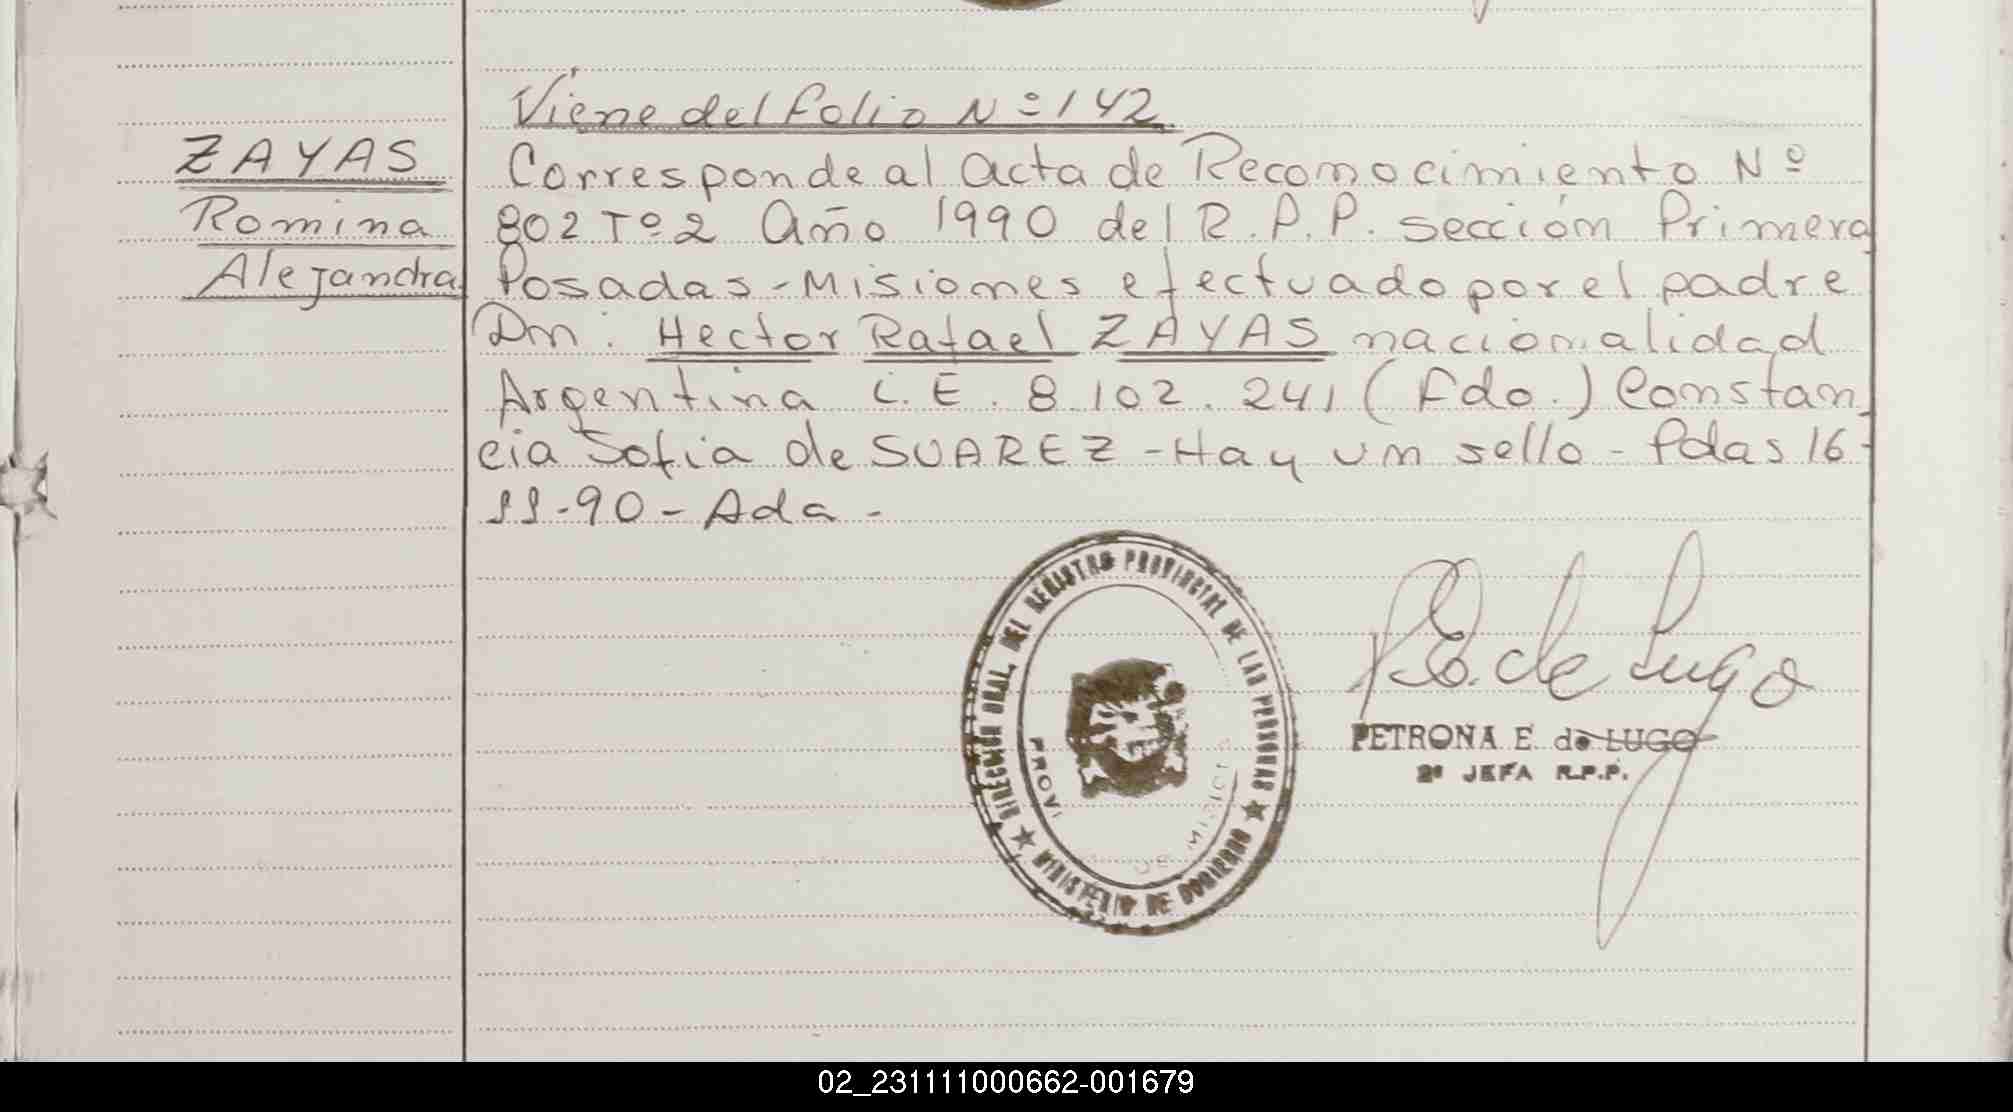 Viene del folio Nº 142
ZAYAS
Romina
Alejandra
Corresponde al acta de Reconocimiento Nº
802 Tº 2 Año 1990 del R.P.P. sección Primera
Posadas - Misiones efectuado por el padre
Dn: Hector Rafael ZAYAS nacionalidad
Argentina L.E. 8.102.241 (Fdo.) Constan
cia Sofia de SUAREZ - Hay un sello - Pdas 16-
11-90 - Ada -
DIRECCION GRAL. DEL REGISTRO PROVINCIAL DE LAS PERSONAS
MINISTERIO DE GOBIERNO
PROVI
DE MISIO
P E. de Lugo
PETRONA E de LUGO
2ª JEFA R.P.P.
02_231111000662-001679